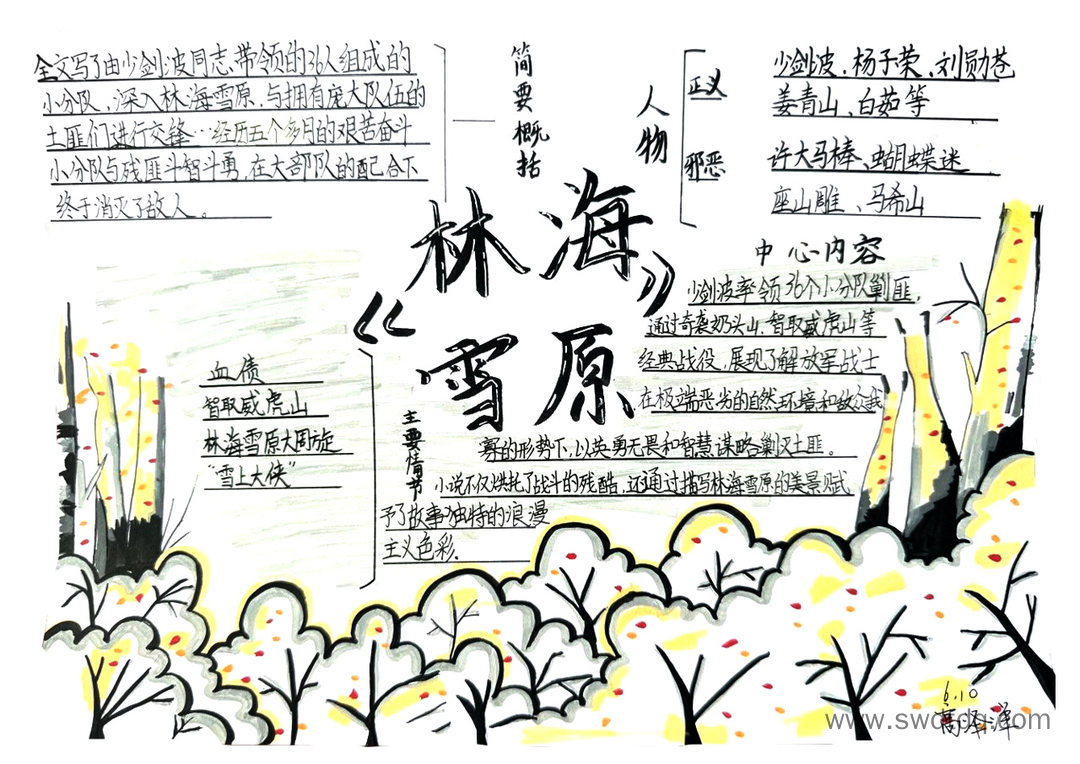 全文写了由少剑波同志带领的36人组成的
小分队，深入林海雪原，与拥有庞大队伍的
土匪们进行交锋…经历五个多月的艰苦奋斗
小分队与残匪斗智斗勇，在大部队的配合下
终于消灭了敌人。
简要概括
人物
正义
少剑波、杨子荣、刘勋苍
姜青山、白茹等
邪恶
许大马棒、蝴蝶迷
座山雕、马希山
《林海
雪原》
中心内容
少剑波率领36个小分队剿匪，
通过奇袭奶头山、智取威虎山等
经典战役，展现了解放军战士
在极端恶劣的自然环境和敌众我
寡的形势下，以英勇无畏和智慧谋略剿灭土匪。
小说不仅烘托了战斗的残酷，还通过描写林海雪原的美景赋
予了故事独特的浪漫
主义色彩.
主要情节
血债
智取威虎山
林海雪原大周旋
“雪上大侠”
6.10